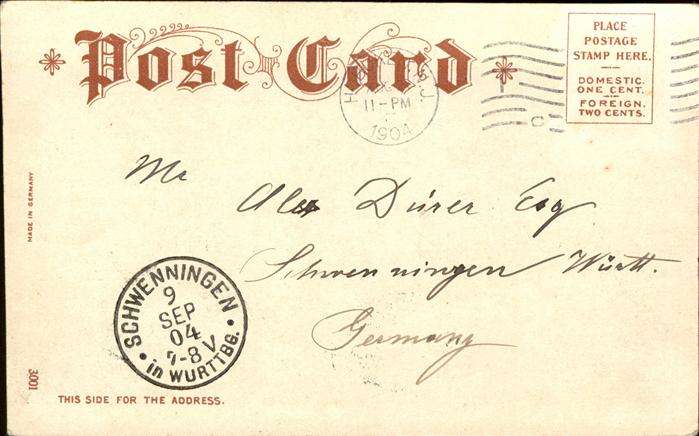 Post Card
PLACE
POSTAGE
STAMP HERE.
DOMESTIC.
ONE CENT.
FOREIGN.
TWO CENTS.
11-PM
1904
C
Mr
Alex Dürer Esq
Schwenningen Württ.
Germany
MADE IN GERMANY
SCHWENNINGEN
9
SEP
04
7-8 V
in WÜRTTBG.
3001
THIS SIDE FOR THE ADDRESS.